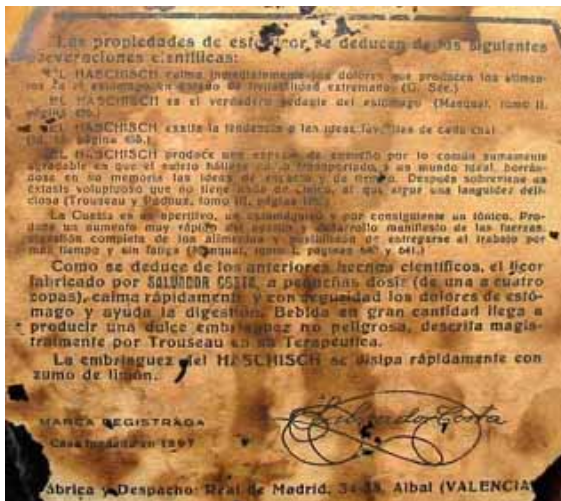 Las propiedades de este licor se deducen de los siguientes
aseveraciones científicas:
EL HASCHISCH calma inmediatamente los dolores que producen los alimen-
tos en el estómago en estado de irritabilidad extremado (G. Sée.)
EL HASCHISCH es el verdadero sedante del estómago (Manqual, tomo II,
página
EL HASCHISCH excita la tendencia a las ideas favorites de cada cual
página 658.)
EL HASCHISCH produce una especie de ensueño por lo común sumamente
agradable en que el sujeto hállase como transportado a un mundo ideal, borrán-
dose en su memoria las ideas de espacio y de tiempo. Después sobreviene un
éxtasis voluptuoso que no tiene nada de cínico, al que sigue una languidez deli-
ciosa (Trousseau y Pidoux, tomo III, página
La Cuasia es un aperitivo, un estomáquico y por consiguiente un tónico. Pro-
duce un aumento muy rápido del apetito, desarrollo manifiesto de las fuerzas,
digestión completa de los alimentos y posibilidad de entregarse al trabajo por
más tiempo y sin fatiga (Manqual, tomo I, páginas 640 y 641.)
Como se deduce de los anteriores hechos científicos, el licor
fabricado por SALVADOR COSTA, a pequeñas dosis (de una a cuatro
copas), calma rápidamente y con seguridad los dolores de estó-
mago y ayuda la digestión. Bebida en gran cantidad llega a
producir una dulce embriaguez no peligrosa, descrita magis-
tralmente por Trouseau en su Terapéutica.
La embriaguez del HASCHISCH se disipa rápidamente con
zumo de limón.
MARCA REGISTRADA
Salvador Costa
Casa fundada en 1897
Fábrica y Despacho: Real de Madrid, 34-38. Albal (VALENCIA)